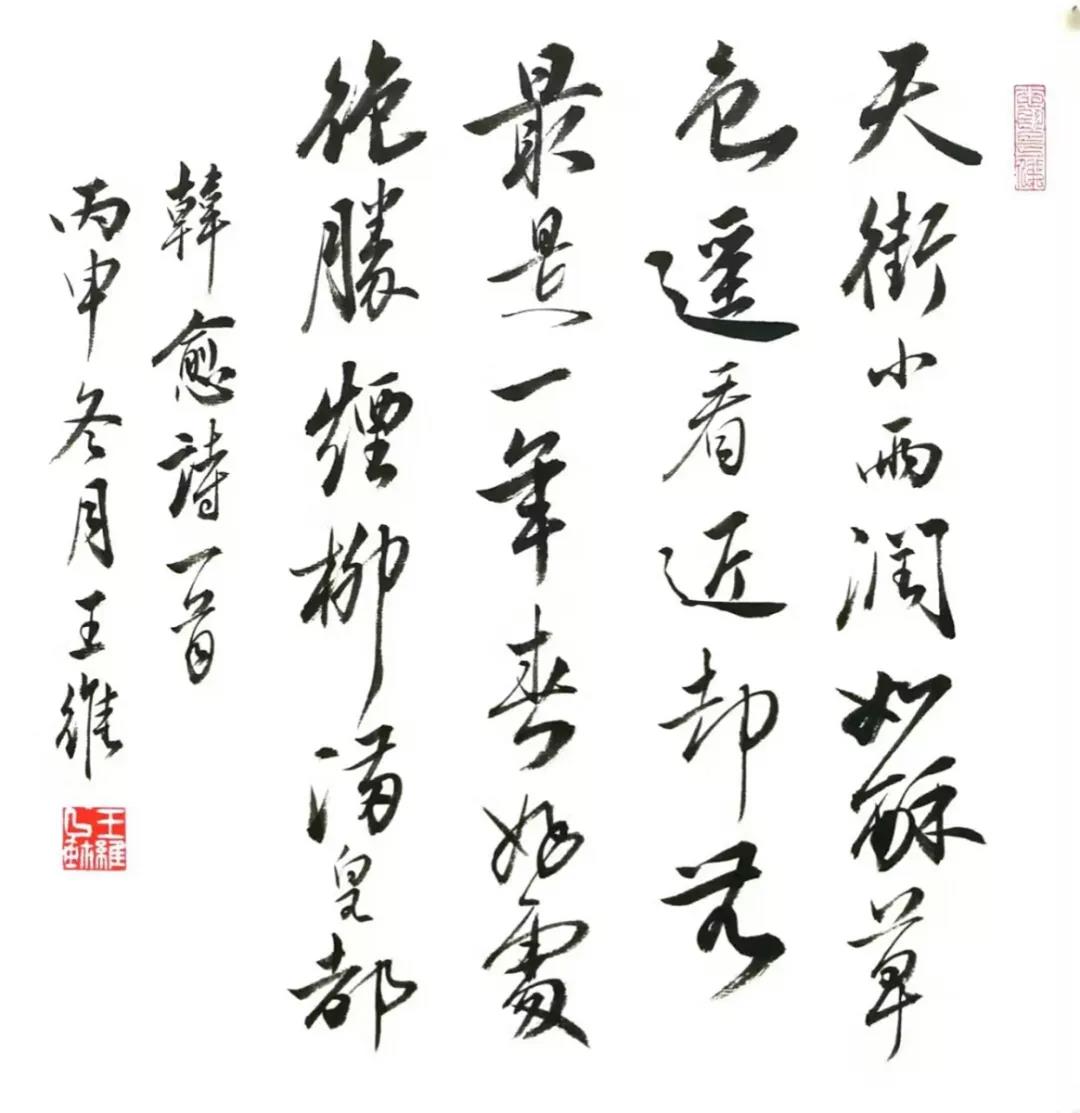 天街小雨润如酥草
色遥看近却无
最是一年春好處
絶勝煙柳满皇都
韓愈詩一首
丙申冬月王維